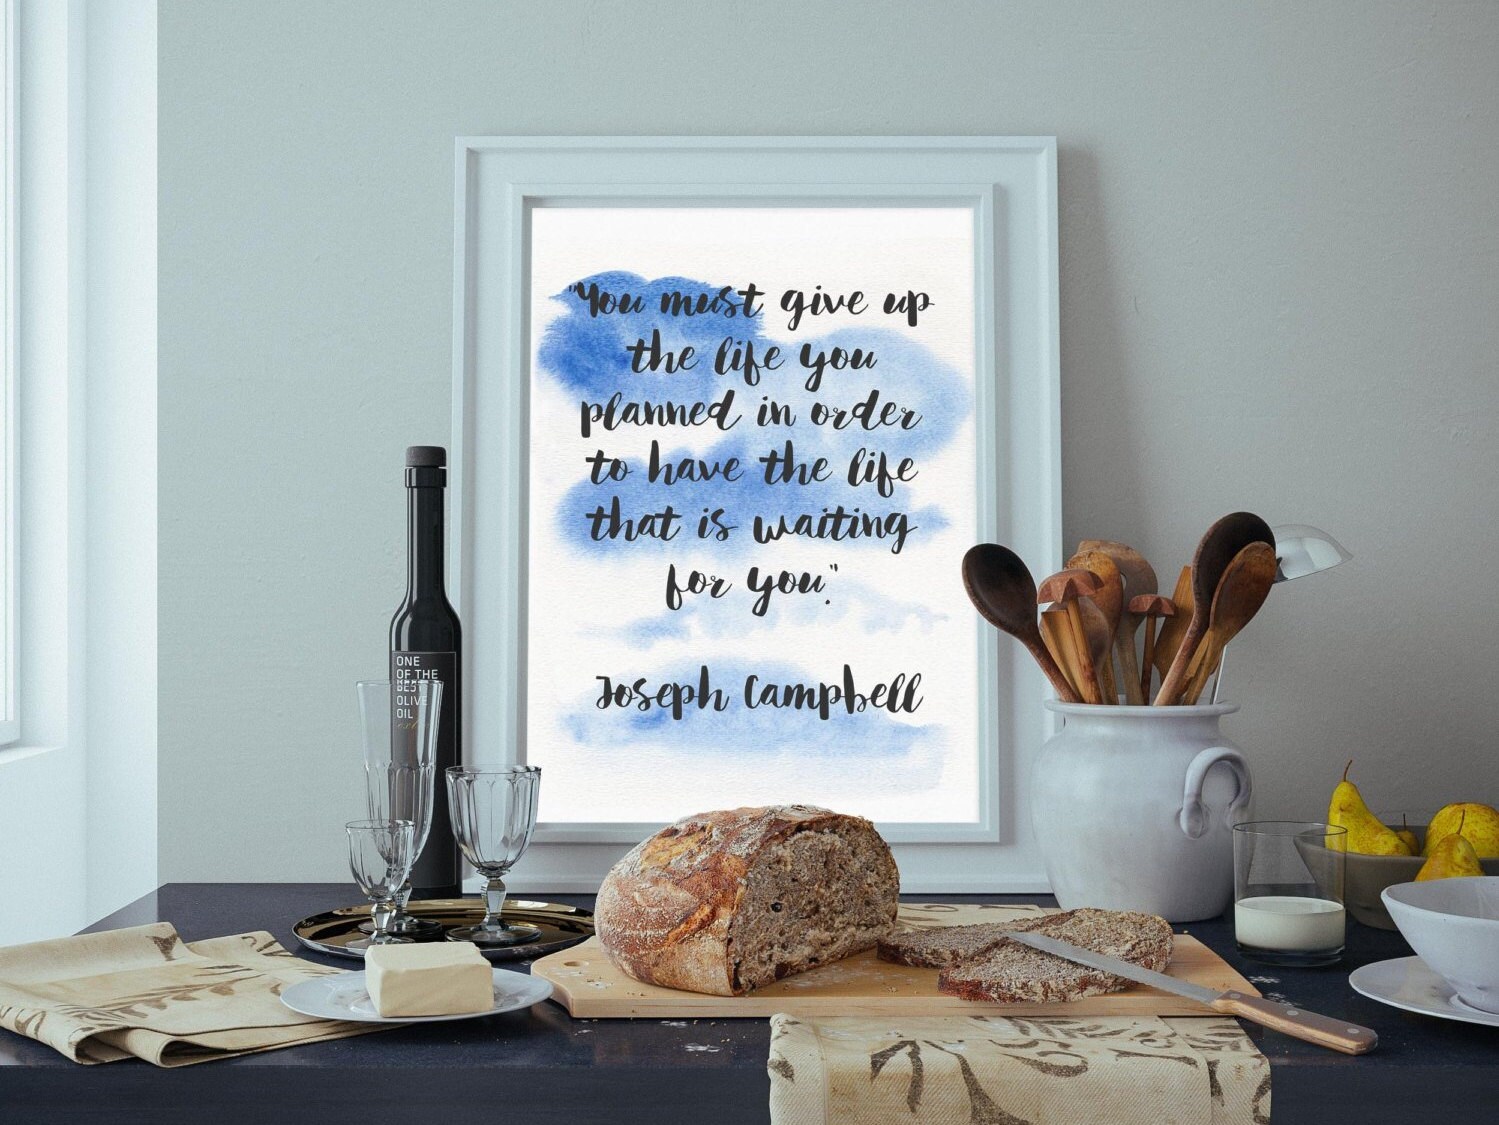 "You must give up
the life you
planned in order
to have the life
that is waiting
for you".
Joseph Campbell
ONE
OF THE
BEST
OLIVE
OIL